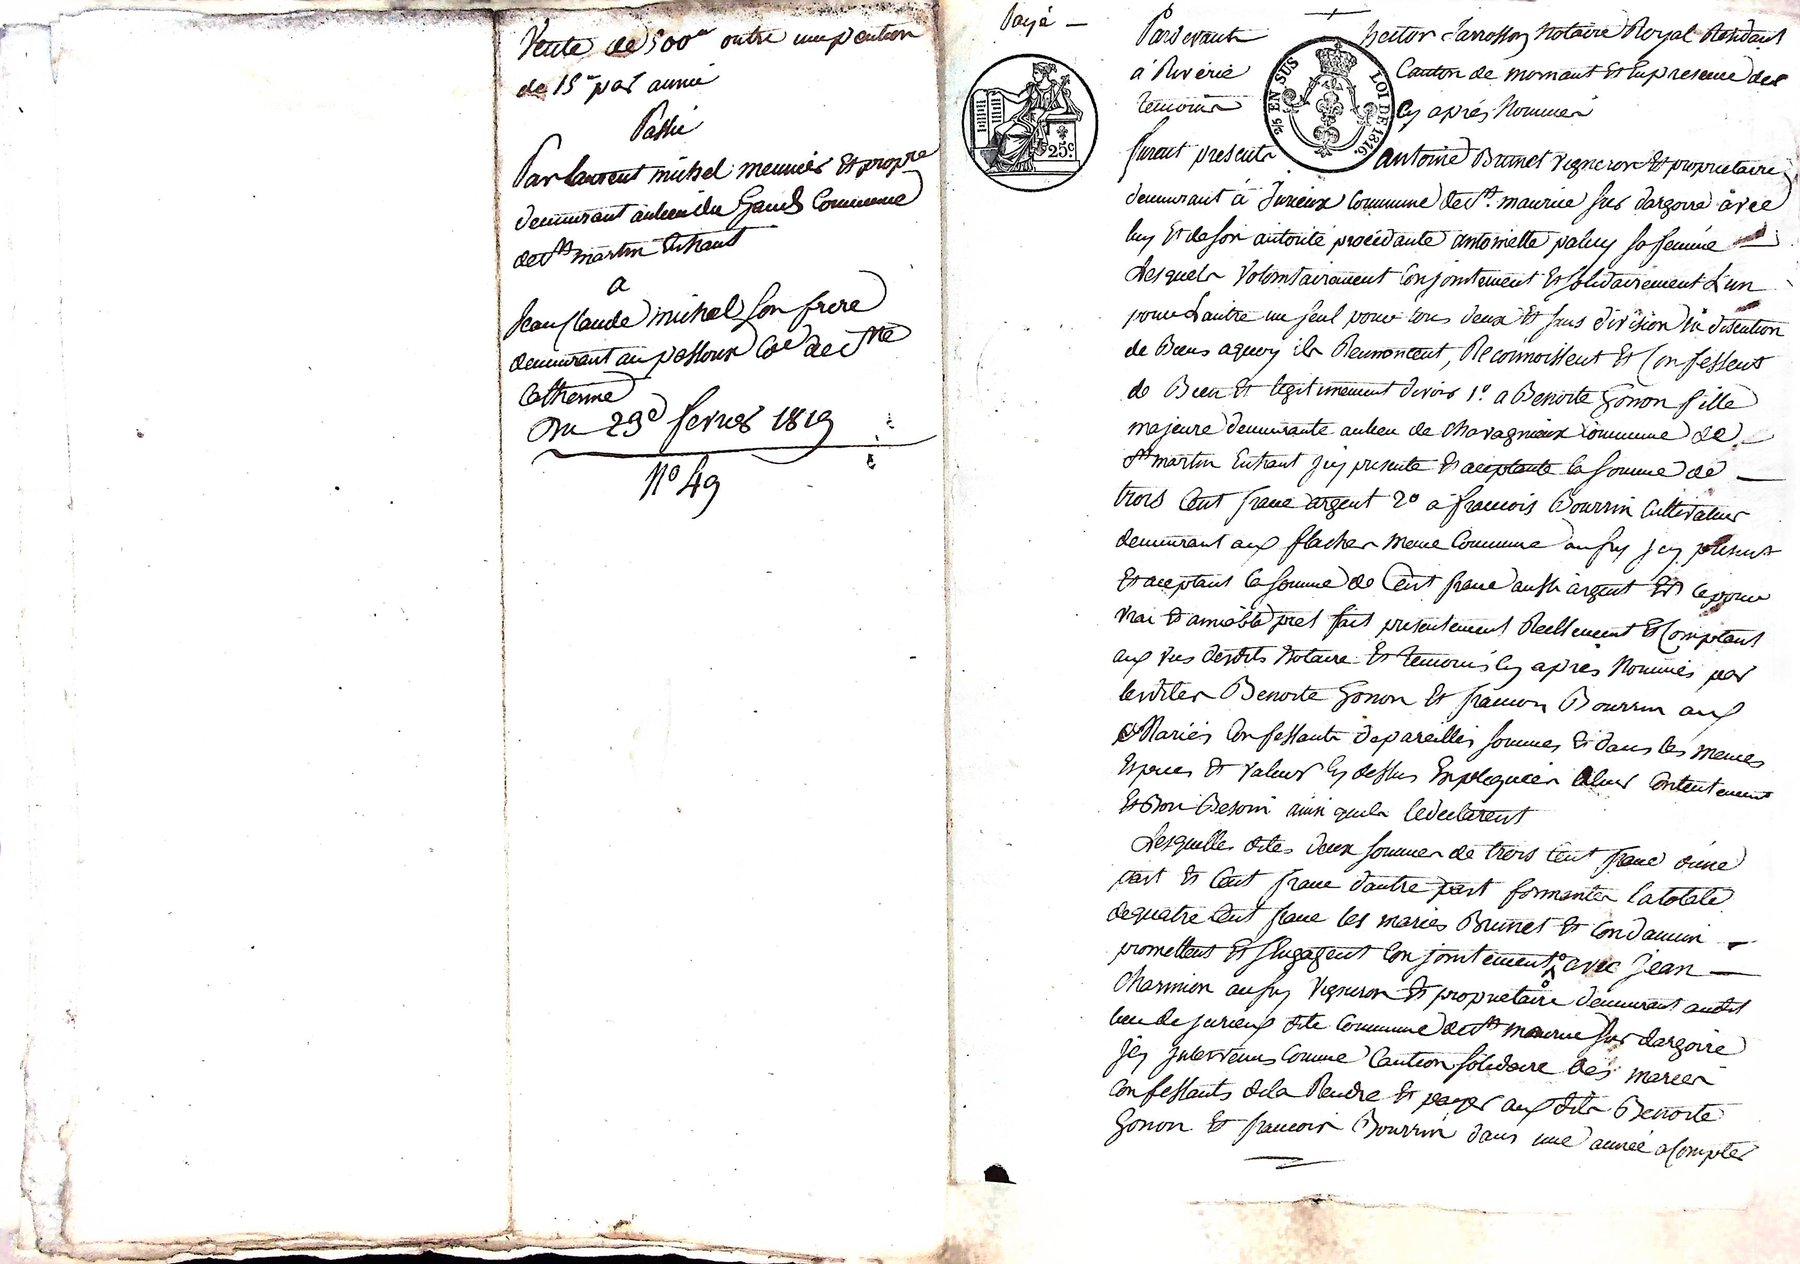 Vente de 500# outre une pention
de 15# par année
Passé
Par Laurent michel meunier et propre
demeurant au lieu du Commune
de St martin Enhaut
a
Jean Claude michel son frere
demeurant au passoux Cne de Ste
Catherine
Du 23e fevrier 1819
N° 49
Payé —
Pardevant hector Jarrosson Notaire Royal Residant
à Riverie Canton de mornant Et En presence des
temoins Cy après Nommés
25 EN SUS LOI DE 1816.
25c
furent presents antoine Brunet vigneron Et proprietaire
demeurant à Jurieux Commune de St. maurice sur dargoire avec
luy Et de son autorité procédante antoinette paluy sa femme —
Lesquels Volontairement Conjointement Et solidairement L'un
pour L'autre un seul pour tous deux Et sans division ni discution
de Biens aquoy ils Renoncent, Reconnoissent Et Confessent
de Bien Et legitimement devoir 1° a Benoite Gonon fille
majeure demeurante au lieu de Chavagnieux Commune de —
St martin Enhaut jcy presente Et aceptante la somme de —
trois Cent franc argent 2° à francois Bourrin Cultivateur
demeurant aux flaches meme Commune aussy jcy present
Et aceptant la somme de Cent franc aussi argent Et ce pour
vrai Et amiable pret fait presentement Reellement Et Comptant
aux vus desdits Notaire Et temoins Cy après Nommés par
lesdites Benoite Gonon Et francois Bourrin aux
Mariés Confessants de pareilles sommes Et dans les memes
Especes Et valeur Cy dessus Expliquées a leur Contentement
Et Bon Besoin ainsi quils le declarent
Lesquelles dites deux sommes de trois Cent franc d'une
part Et Cent franc d'autre part formantes la totale
de quatre Cent franc les mariés Brunet Et Condamin —
promettent Et s'Engagent Conjointement avec Jean —
Charmion aussy vigneron Et proprietaire demeurant audit
lieu de jurieux dite Commune de St maurice sur dargoire
jcy jntervenu Comme Caution solidaire des mariés
Confessants de la Rendre Et payer aux dits Benoite
Gonon Et francois Bourrin dans une année a Compter